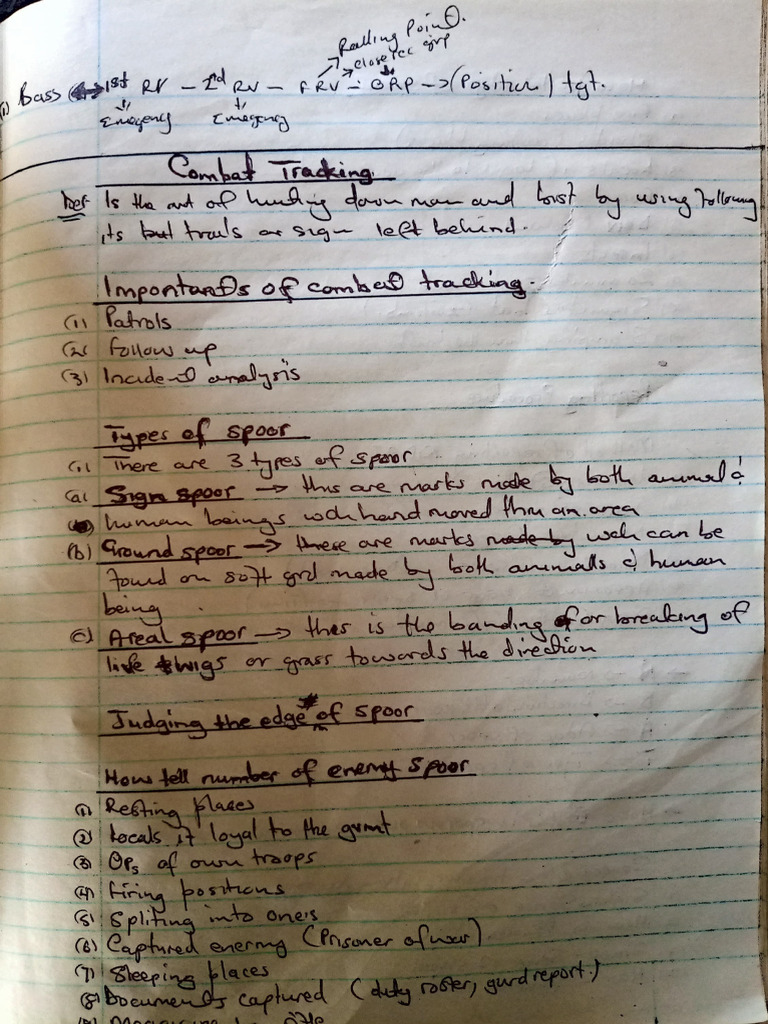 Ralling Point.
close rec grp
(1) Bass ↔ 1st RV – 2nd RV – FRV – ORP → (Position) tgt.
Emegency Emegency
Combat Tracking
Def Is the art of hunting down man and by using following
its trails or sign left behind.
Importants of combat tracking.
(1) Patrols
(2) Follow up
(3) Incident analysis
Types of spoor
(1) There are 3 types of spoor
(a) Sign spoor → this are marks made by both animal &
human beings wch hand moved thru an area
(b) Ground spoor → these are marks made by wch can be
found on soft grd made by both animalls & human
being
(c) Areal spoor → this is the banding of or breaking of
live twigs or grass towards the direction
Judging the edge of spoor
How tell number of enemy spoor
(1) Resting places
(2) Locals if loyal to the gvmt
(3) OPs of own troops
(4) Firing positions
(5) Spliting into one's
(6) Captured enermy (Prisoner of war)
(7) Sleeping places
(8) Documents captured (duty roster, gurd report.)